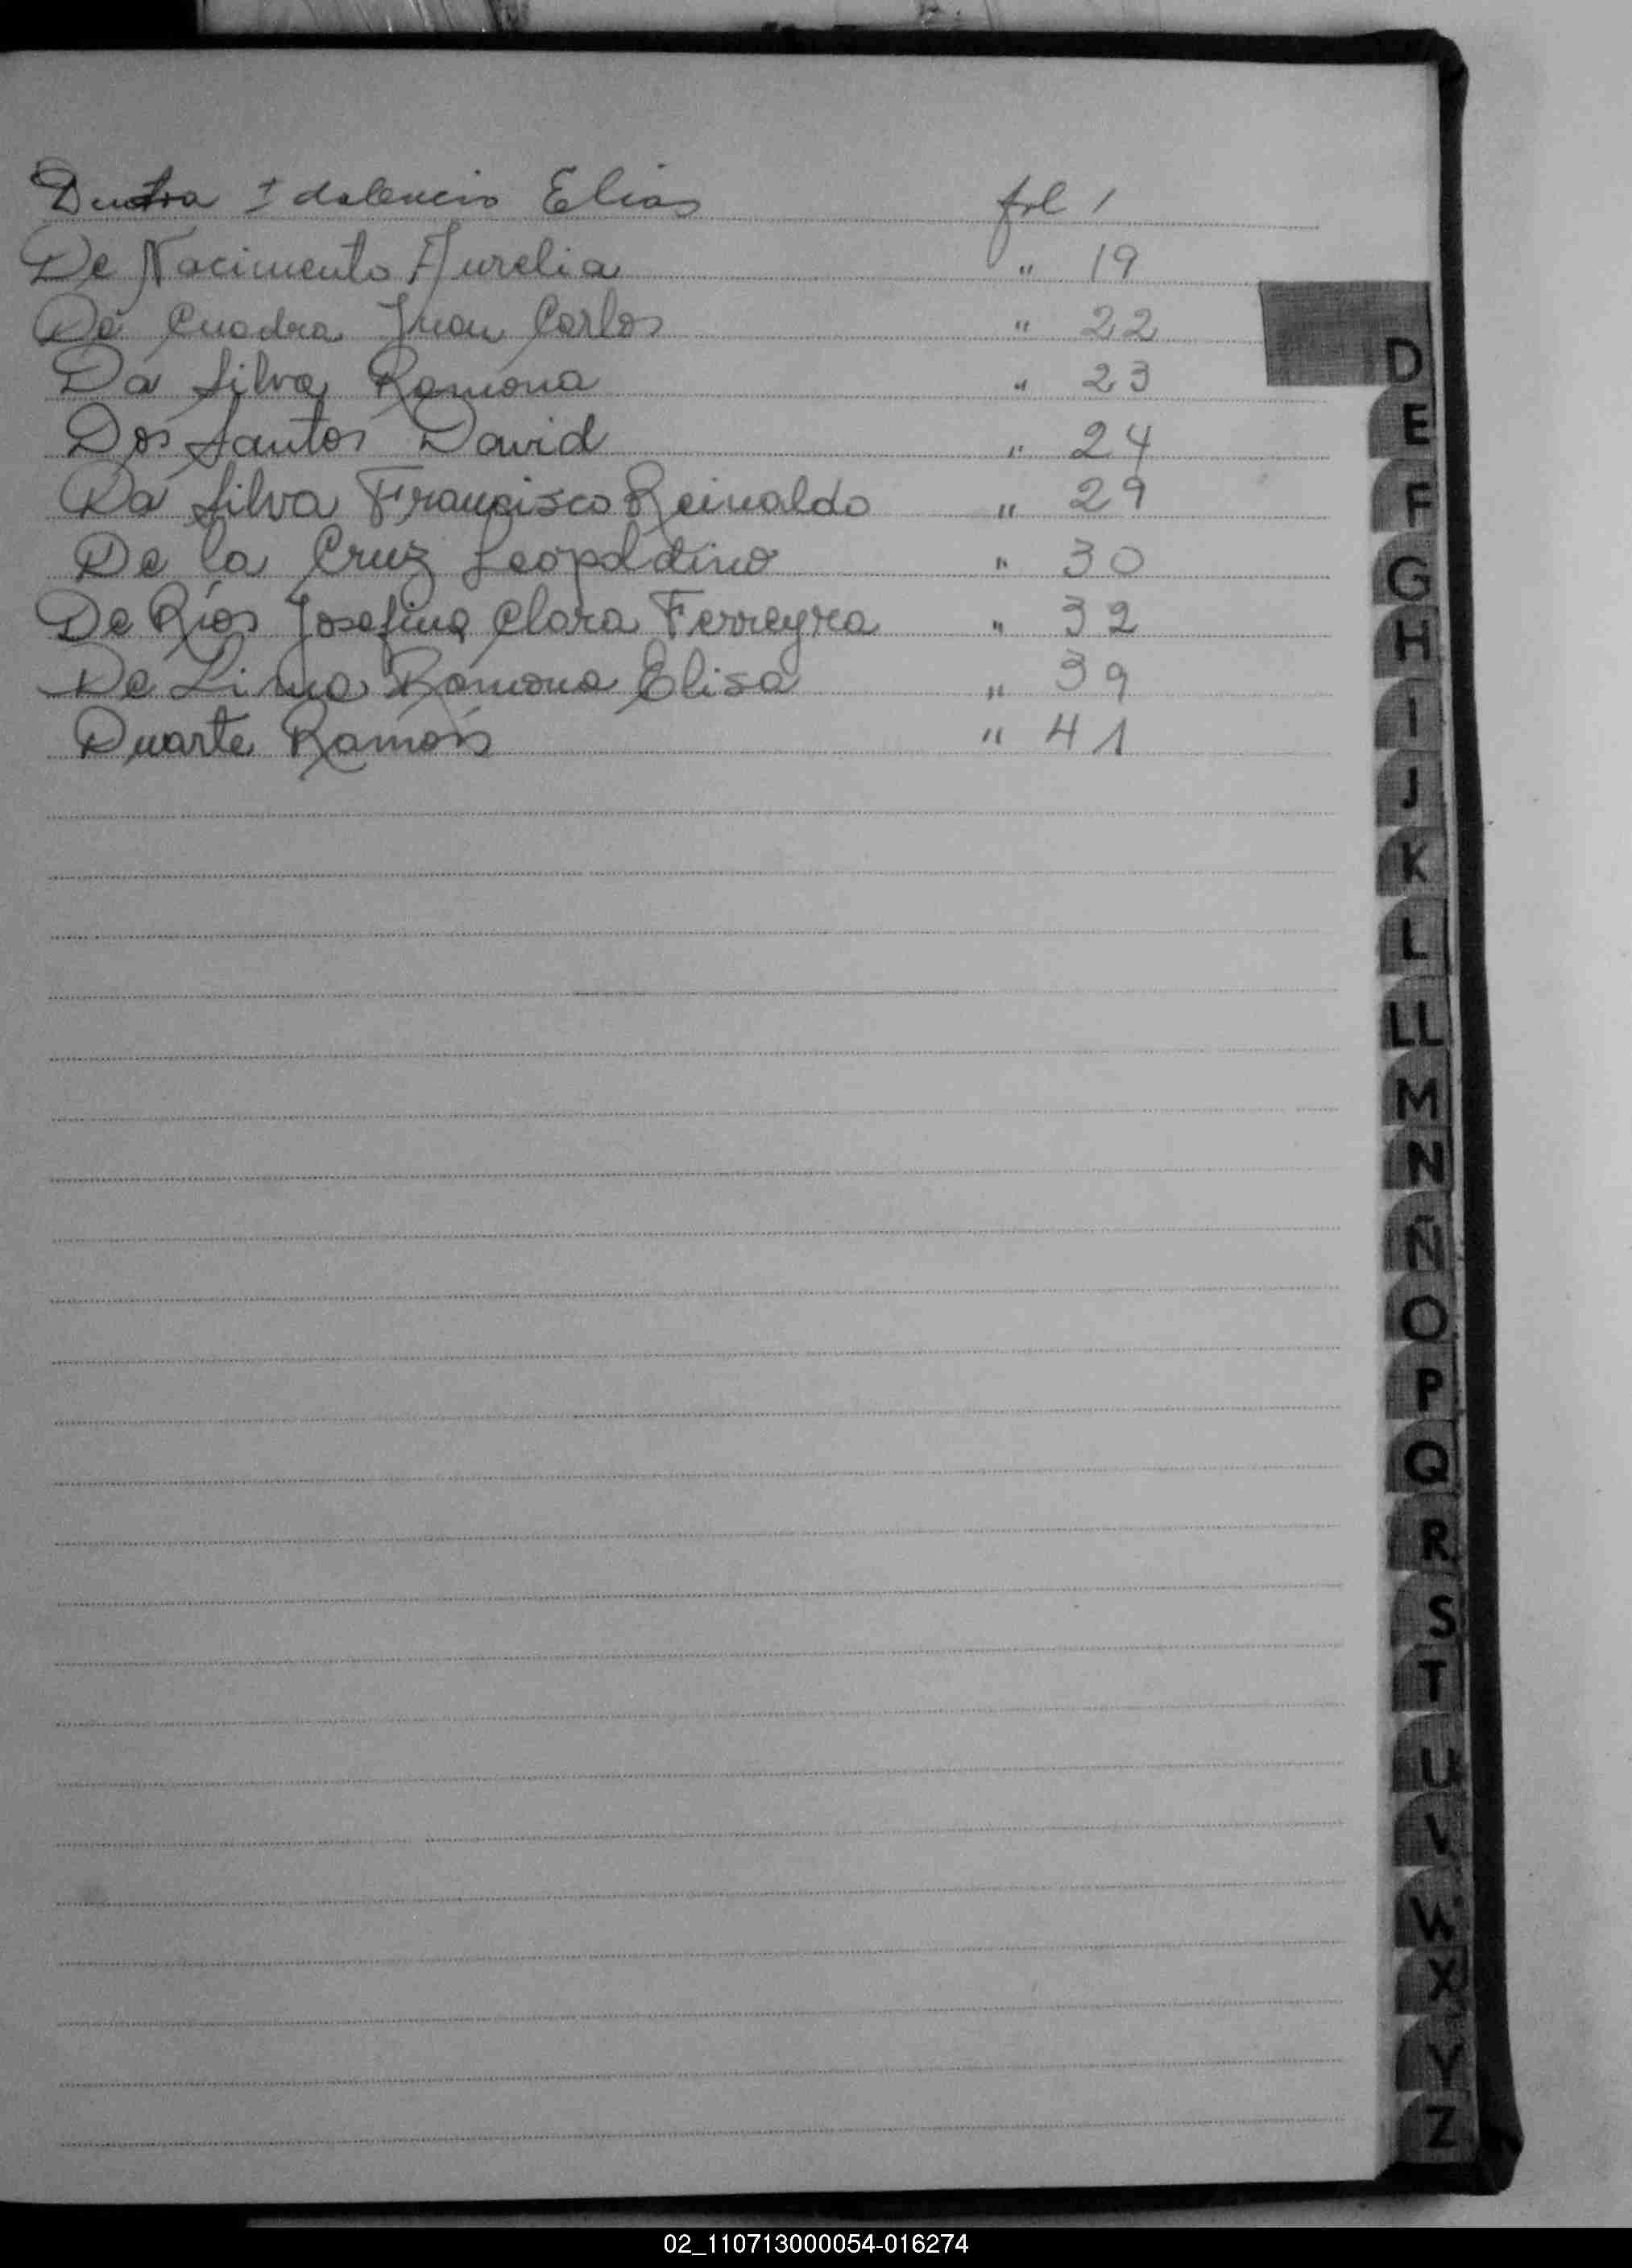 Dutra Idalencio Elias fol 1
De Nacimento Aurelia " 19
Da Cuadra Juan Carlos " 22
Da Silva Ramona " 23
Dos Santos David " 24
Da Silva Francisco Reinaldo " 29
De la Cruz Leopoldino " 30
De Ríos Josefina Clara Ferreyra " 32
De Lima Ramona Elisa " 39
Duarte Ramón " 41
D
E
F
G
H
I
J
K
L
LL
M
N
Ñ
O
P
Q
R
S
T
U
V
W
X
Y
Z
02_110713000054-016274